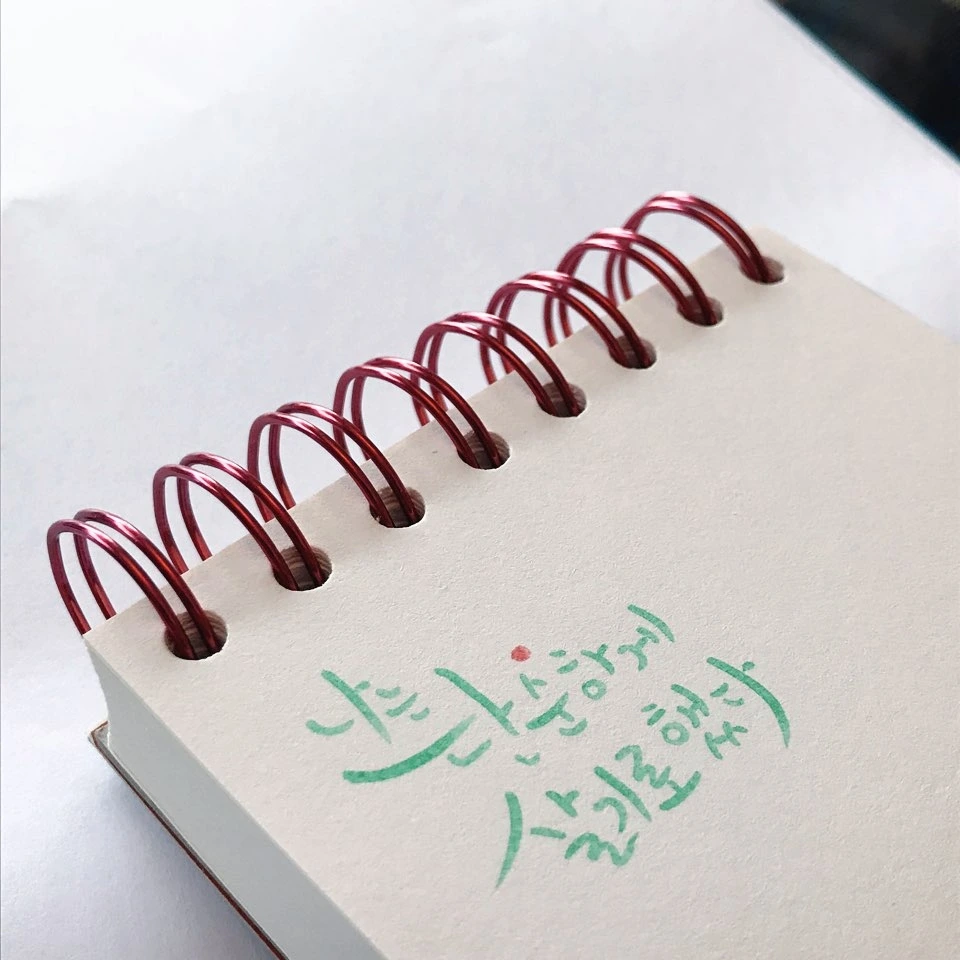 나는 단순하게
살기로 했다